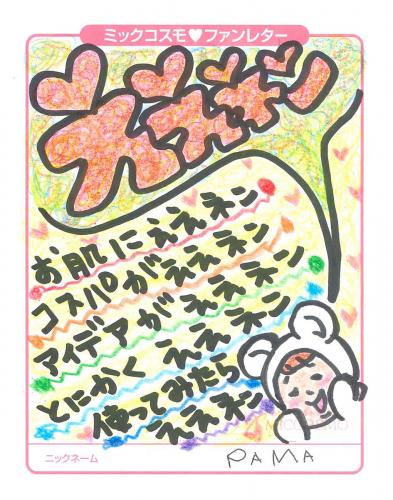 ミックコスモ♥ファンレター
ええネン
お肌にええネン
コスパがええネン
アイデアがええネン
とにかくええネン
使ってみたら
ええネン
ニックネーム
PAMA